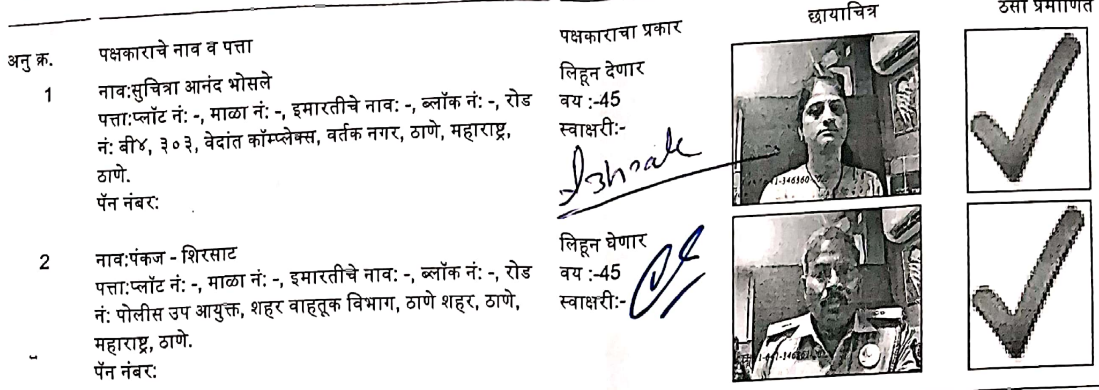 अनु क्र. पक्षकाराचे नाव व पत्ता पक्षकाराचा प्रकार छायाचित्र ठसा प्रमाणित
1 नाव:सुचित्रा आनंद भोसले
पत्ता:प्लॉट नं: -, माळा नं: -, इमारतीचे नाव: -, ब्लॉक नं: -, रोड
नं: वी४, ३०३, वेदांत कॉम्प्लेक्स, वर्तक नगर, ठाणे, महाराष्ट्र,
ठाणे.
पॅन नंबर:
लिहून देणार
वय :-45
स्वाक्षरी:-
2 नाव:पंकज - शिरसाट
पत्ता:प्लॉट नं: -, माळा नं: -, इमारतीचे नाव: -, ब्लॉक नं: -, रोड
नं: पोलीस उप आयुक्त, शहर वाहतूक विभाग, ठाणे शहर, ठाणे,
महाराष्ट्र, ठाणे.
पॅन नंबर:
लिहून घेणार
वय :-45
स्वाक्षरी:-